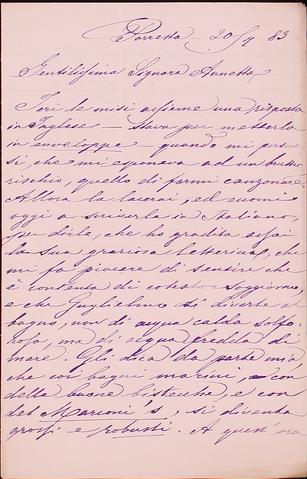 Porretta 20/7 83
Gentilissima Signora Annetta
Ieri le misi assieme una risposta
in Inglese — stava per metterla
in enveloppe — quando mi pen-
sai che mi esponeva ad un brutto
rischio, quello di farmi canzonare
Allora la lacerai, ed eccomi
oggi a scriverla in Italiano,
per dirle, che ho gradita assai
la sua graziosa letterina, che
mi fa piacere di sentire che
è contenta di cotesto soggiorno,
e che Guglielmo si diverte a
bagno, non di acqua calda solfo-
rosa, ma di acqua fredda di
mare. Gli dica da parte mia
che coi bagni marini, e con
delle buone bistecche, e con
del Marioni's, si diventa
grossi e robusti. A quest'ora